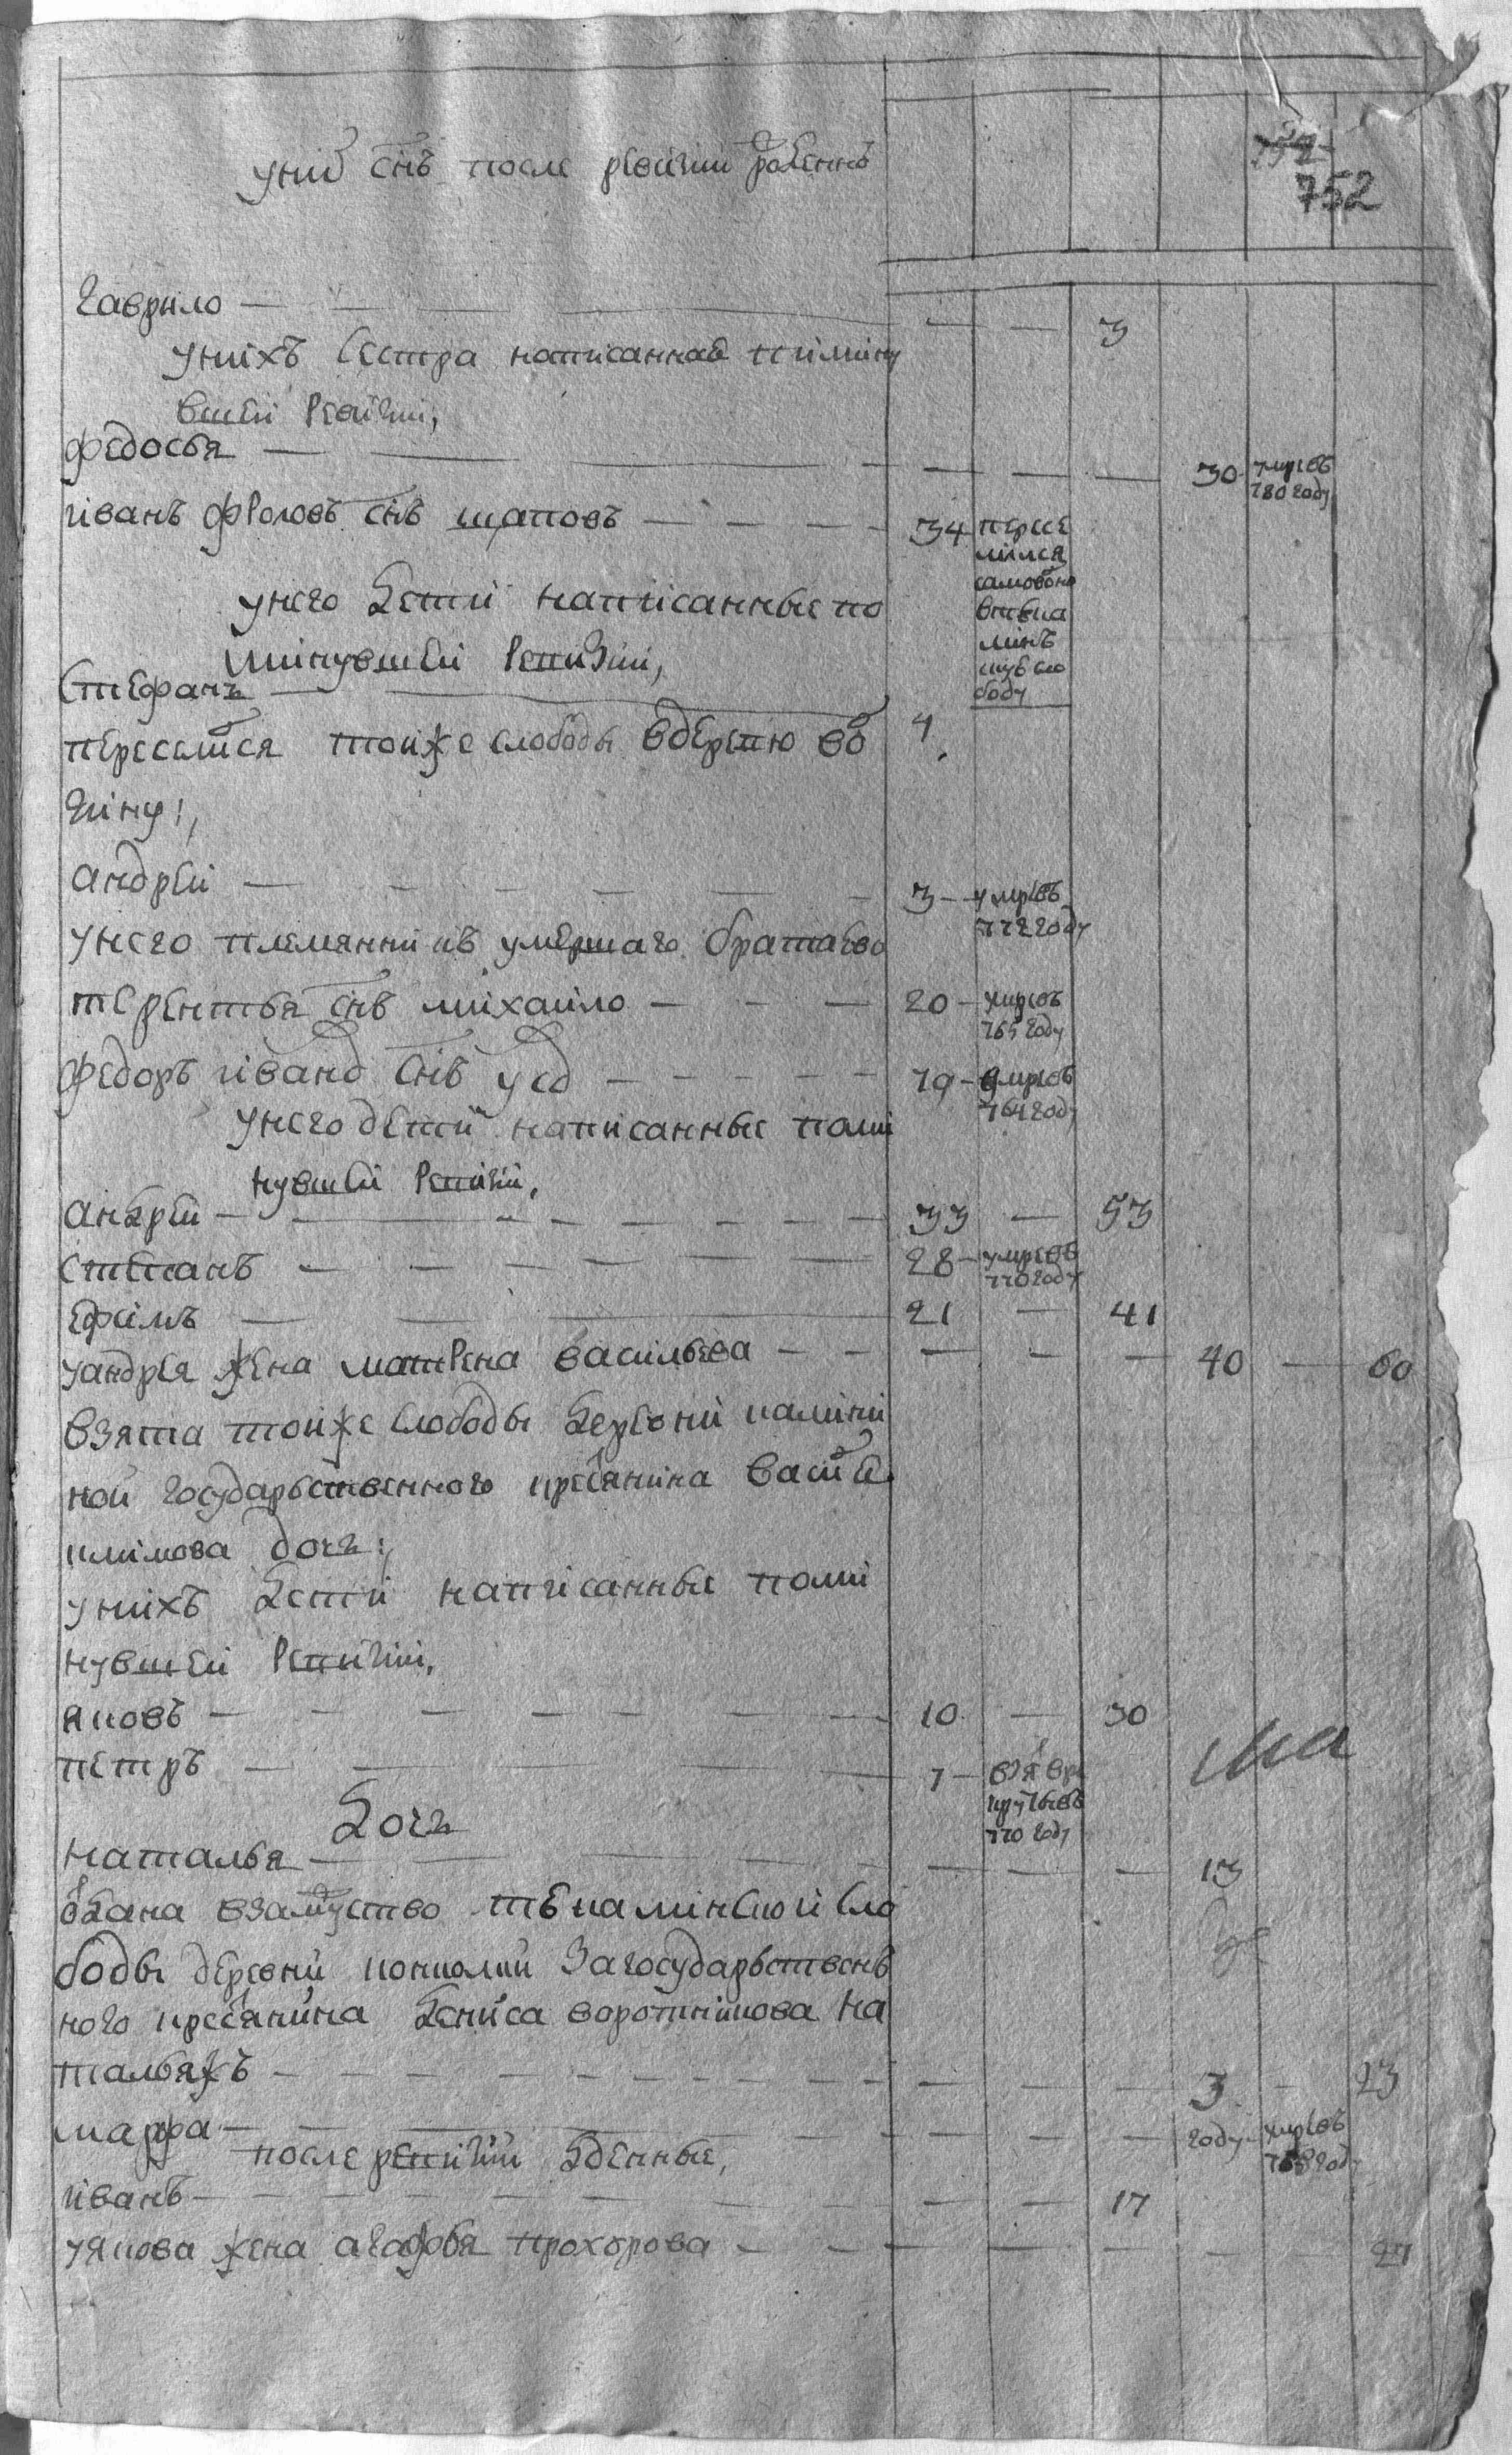 752
у них снъ после ревизии рожденнъ
Гаврило — — — — — 3
у нихъ сестра написанная по мину
вшей ревизии,
Федосья — — — — — — 30 умре въ
780 году
иванъ фроловъ снъ щаповъ — — — — 34 пересе
лился
самовольно
в тѣка
минъ
скую сло
боду
у него дети написанные по
минувшей ревизии,
Стефанъ — 4
переселился той же слободы в деревню во
гину,
андрей — — — — — 3 — умре въ
772 году
у него племянникъ умершаго брата ево
терентья снъ михаило — — — 20 — умре въ
765 году
федоръ иванов снъ — — — — — 79 — умре въ
764 году
у него дети написанные по ми
нувшей ревизии,
андрей — — — — — — — 33 — 53
степанъ — — — — — — 28 — умре въ
770 году
ефимъ — — — 21 — 41
у андрея жена матрена васильева — — — — — 40 — 60
взята той же слободы деревни калини
ной государственного крестьянина василья
климова дочь,
у нихъ дети написанные по ми
нувшей ревизии,
яковъ — — — — — — — 10 — 30
петръ — — — — — 7 — взят в ре
круты въ
770 году
дочь
наталья — — — — — — — 13
отдана в замужство тѣкаминской сло
боды деревни за государственъ
ного крестьянина дениса воротникова на
тальяжъ — — — — — — — — — — — — 3 — 23
марфа — — — — — — — году — умре въ
году
после ревизии рожденные,
иванъ — — — — — — — — — 17
у якова жена агафья прохорова — — — — — — — 27